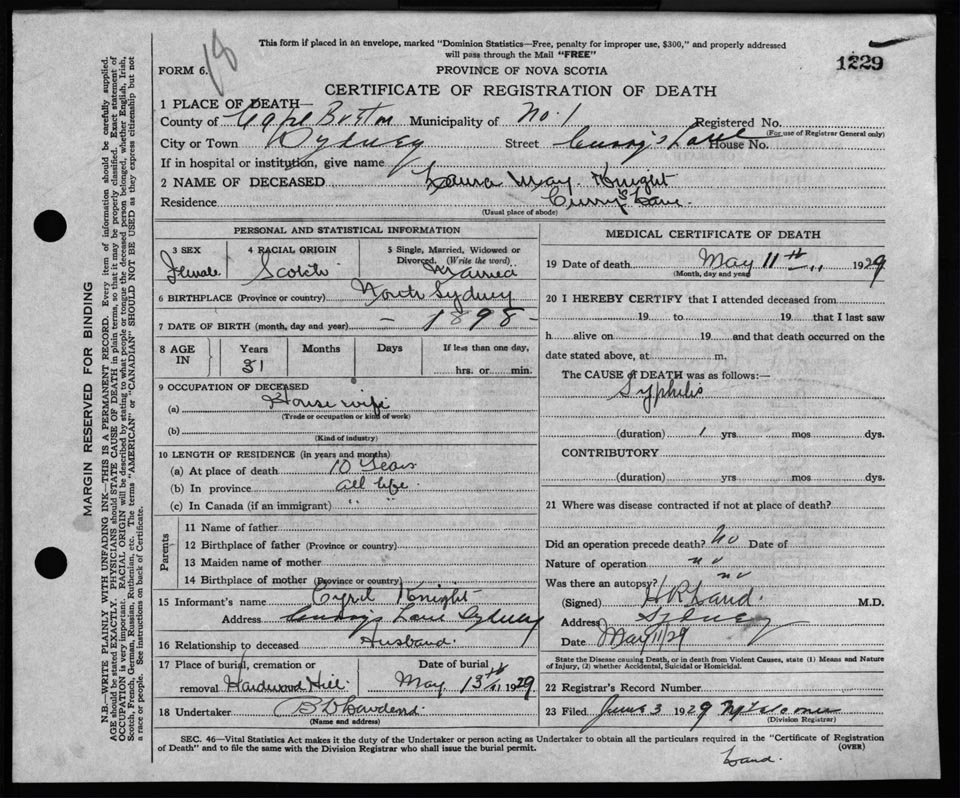 18
This form if placed in an envelope, marked "Dominion Statistics—Free, penalty for improper use, $300," and properly addressed
will pass through the Mail "FREE"
1229
FORM 6.
PROVINCE OF NOVA SCOTIA
CERTIFICATE OF REGISTRATION OF DEATH
1 PLACE OF DEATH—
County of Cape Breton Municipality of No. 1 Registered No.
(For use of Registrar General only)
City or Town Sydney Street Curry's Lane House No.
If in hospital or institution, give name
2 NAME OF DECEASED Laura May Knight
Residence Curry's Lane.
(Usual place of abode)
PERSONAL AND STATISTICAL INFORMATION
3 SEX Female
4 RACIAL ORIGIN Scotch
5 Single, Married, Widowed or
Divorced. (Write the word) Married
6 BIRTHPLACE (Province or country) North Sydney
7 DATE OF BIRTH (month, day and year) - 1898 -
8 AGE IN Years 31 Months Days If less than one day,
hrs. or min.
9 OCCUPATION OF DECEASED
(a) House wife
(Trade or occupation or kind of work)
(b)
(Kind of industry)
10 LENGTH OF RESIDENCE (in years and months)
(a) At place of death 10 Years
(b) In province all life.
(c) In Canada (if an immigrant) " "
Parents
11 Name of father
12 Birthplace of father (Province or country)
13 Maiden name of mother
14 Birthplace of mother (Province or country)
15 Informant's name Cyril Knight
Address Curry's Lane Sydney
16 Relationship to deceased Husband.
17 Place of burial, cremation or
removal Hardwood Hill
Date of burial
May 13th 1929
18 Undertaker
(Name and address)
MEDICAL CERTIFICATE OF DEATH
19 Date of death May 11th 1929
(Month, day and year)
20 I HEREBY CERTIFY that I attended deceased from
19 to 19 that I last saw
h alive on 19 and that death occurred on the
date stated above, at m.
The CAUSE of DEATH was as follows:—
Syphilis
(duration) 1 yrs mos dys.
CONTRIBUTORY
(duration) yrs mos dys.
21 Where was disease contracted if not at place of death?
Did an operation precede death? No Date of
Nature of operation no
Was there an autopsy? no
(Signed) M.D.
Address Sydney
Date May 11/29
State the Disease causing Death, or in death from Violent Causes, state (1) Means and Nature
of Injury, (2) whether Accidental, Suicidal or Homicidal.
22 Registrar's Record Number
23 Filed June 3 1929
(Division Registrar)
SEC. 46—Vital Statistics Act makes it the duty of the Undertaker or person acting as Undertaker to obtain all the particulars required in the "Certificate of Registration
of Death" and to file the same with the Division Registrar who shall issue the burial permit.
(OVER)
MARGIN RESERVED FOR BINDING
N.B.—WRITE PLAINLY WITH UNFADING INK—THIS IS A PERMANENT RECORD. Every item of information should be carefully supplied.
AGE should be stated EXACTLY. PHYSICIANS should STATE CAUSE OF DEATH in plain terms, so that it may be properly classified. Exact statement of
OCCUPATION is very important. RACIAL ORIGIN will be described by stating to what people or tongue the deceased person belonged, whether English, Irish,
Scotch, French, German, Russian, Ruthenian, etc. The terms "AMERICAN" or "CANADIAN" SHOULD NOT BE USED as they express citizenship but not
a race or people. See instructions on back of Certificate.